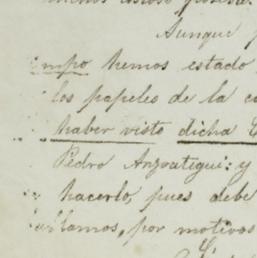 Aunque
mpo hemos estado
los papeles de la
haber visto dicha
Pedro Anzoategui: y
hacerlo, pues debe
llamos, por motivos